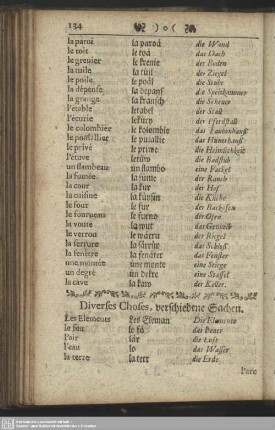 134 ) o (
la paroi la paroä die Wand
le toit le toä das Dach
le grenier le krenie der Boden
la tuile la tüil der Ziegel
le poile le poäl die Stube
la dépense la depanß die Speißkammer
la grange la kransch die Scheuer
l'étable letabel der Stall
l'écurie leküry der Pferdstall
le colombier le kolombie das Taubenhauß
le poulallier le pulallie das Hünerhauß
le privé le priwe die Heimlichkeit
l'étuve letüw die Badstub
un flambeau un flambo eine Fackel
la fumée la füme der Rauch
la cour la kur der Hof
la cuisine la küysin die Küche
le four le fur der Bachofen
le fourneau le furno der Ofen
la voute la wut das Gewölb
le verrou le werru der Riegel
la serrure la särrür das Schloß
la fenétre la fenäter das Fenster
une montée üne monte eine Stiege
un degré ün dekre eine Staffel
la cave la kaw der Keller.
Diverses Choses, verschiedene Sachen.
Les Elements Les Eleman Die Elemente
le feu le fö das Feuer
l'air lär die Luft
l'eau lo das Wasser
la terre la terr die Erde